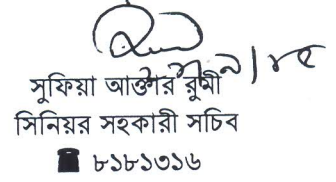 সুফিয়া আক্তার রুমী
সিনিয়র সহকারী সচিব
☎ ৮১৮১৩১৬